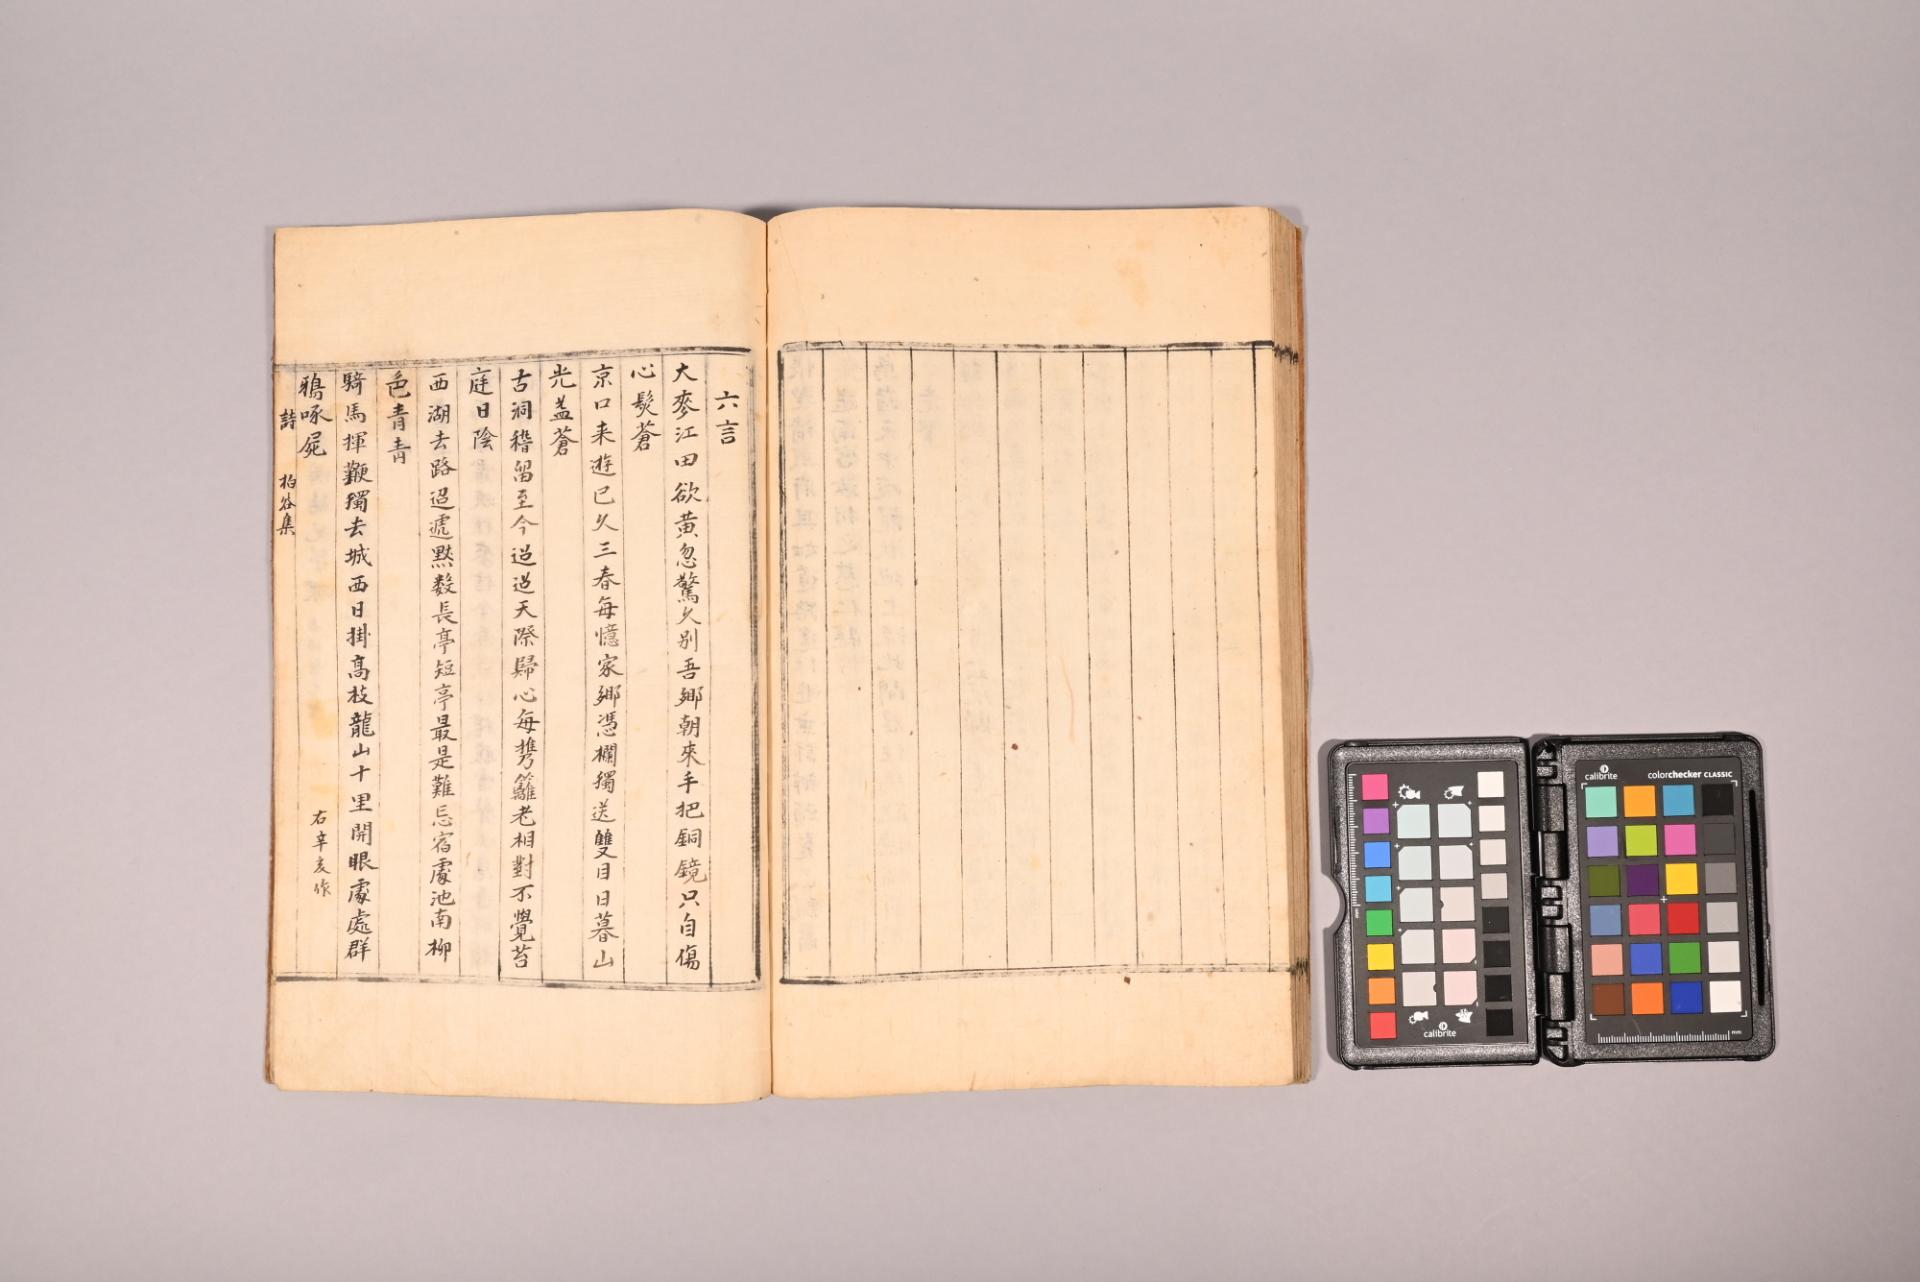 六言
大麥江田欲黄忽驚久别吾鄉朝來手把銅鏡只自傷
心髮蒼
京口来遊已久三春每憶家鄉憑欄獨送雙目日暮山
光盖蒼
古洞稽留至今迢迢天際歸心每携籬老相對不覺苔
庭日陰
西湖去路迢遞黙数長亭短亭最是難忘宿處池南柳
色青青
騎馬揮鞭獨去城西日掛高枝龍山十里開眼處處群
鴉啄屍
右辛亥作
詩 柏谷集
calibrite
calibrite
colorchecker CLASSIC
mm